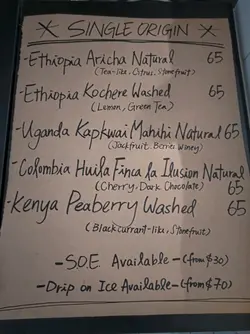 * SINGLE ORIGIN *
-Ethiopia Aricha Natural 65
(Tea-like, Citrus, Stonefruit)
-Ethiopia Kochere Washed 65
(Lemon, Green Tea)
-Uganda Kapkwai Mahihi Natural 65
(Jackfruit. Berries Winey)
-Colombia Huila Finca la Ilusion Natural
(Cherry, Dark Chocolate) 65
-Kenya Peaberry Washed 65
(Blackcurrant-like, Stonefruit)
-S.O.E. Available-(from $30)
-Drip on Ice Available-(from $70)